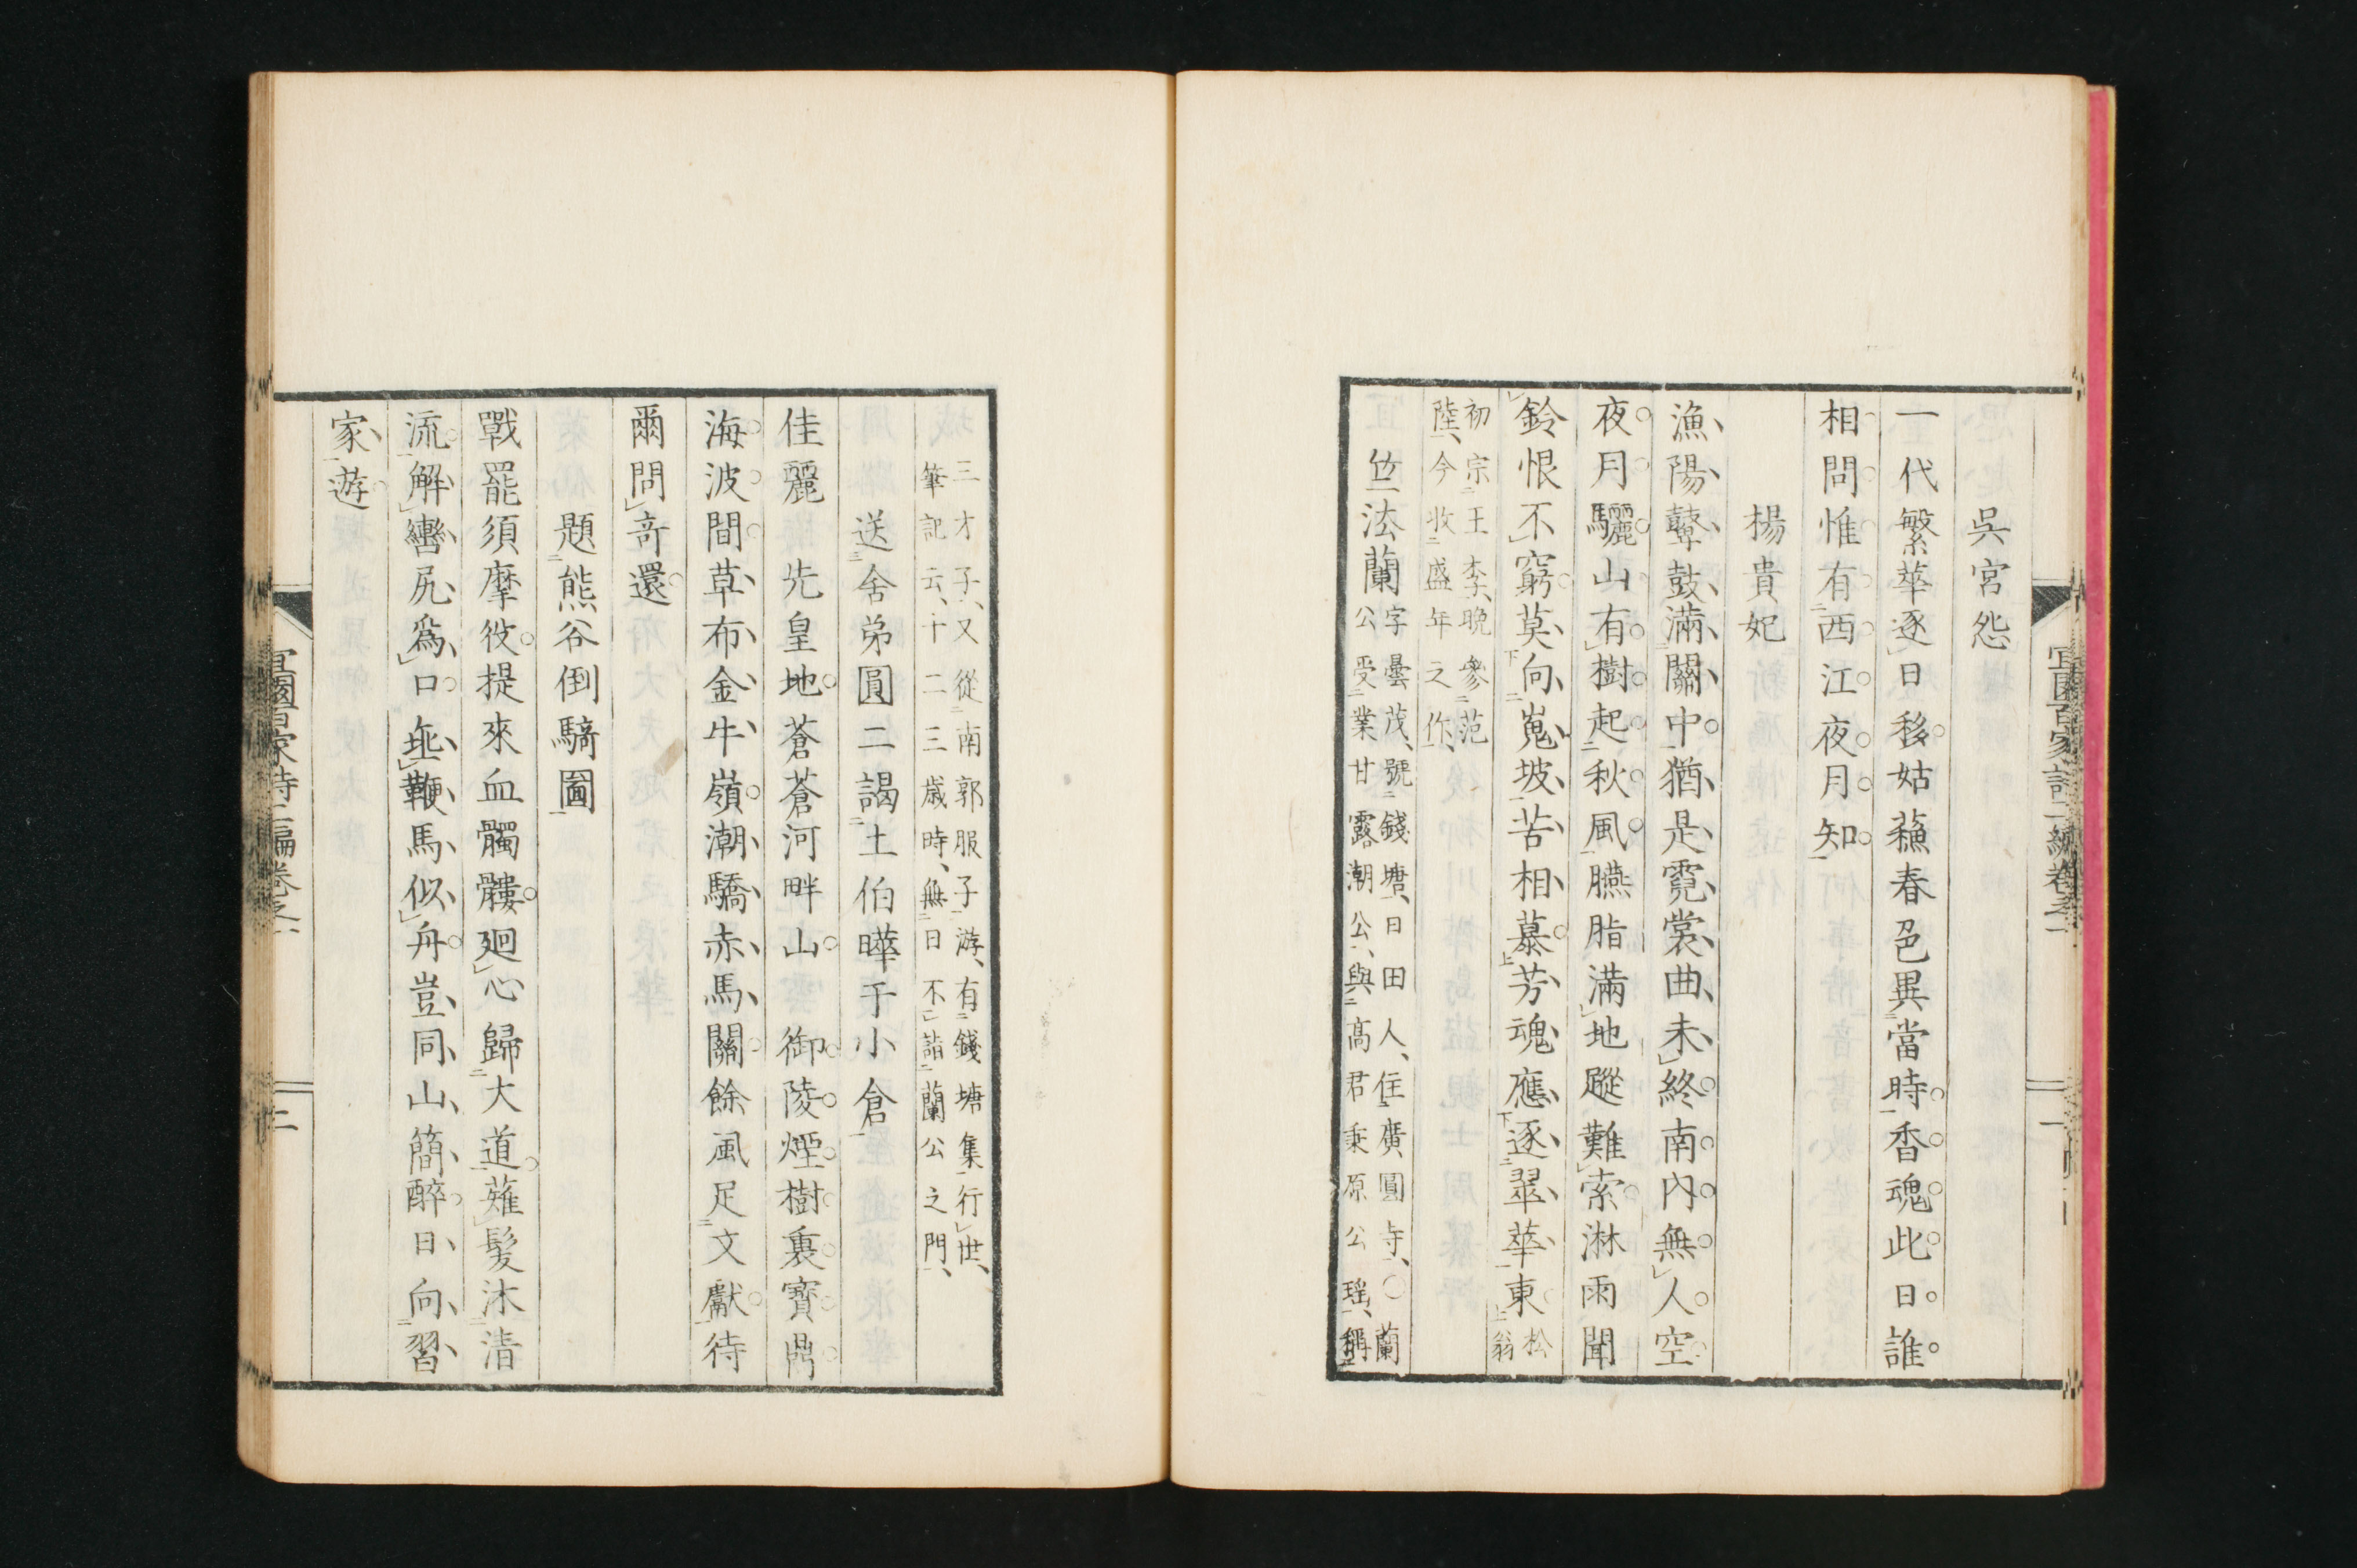 吳宮怨
一代繁華逐日移姑蘓春色異當時香魂此日誰
相問惟有西江夜月知
楊貴妃
漁陽鼙鼓滿關中猶是霓裳曲未終南內無人空
夜月驪山有樹起秋風臙脂滿地蹤難索淋雨聞
鈴恨不窮莫向嵬坡苦相慕芳魂應逐翠華東
松翁
初宗王李晚參范
陸今收盛年之作
法蘭
字曇茂號錢塘日田人住廣圓寺○蘭
公受業甘露潮公與高君秉原公瑤稱
三才子又從南郭服子游有錢塘集行世
筆記云十二三歳時無日不詣蘭公之門
送舍弟圓二謁土伯曄于小倉
佳麗 先皇地蒼蒼河畔山 御陵煙樹裏寳鼎
海波間草布金牛嶺潮驕赤馬關餘風足文獻待
爾問竒還
題熊谷倒騎圖
戰罷須摩彼提來血髑髏廻心歸大道薙髪沐清
流解轡尻爲口垂鞭馬似舟豈同山簡醉日向習
家游